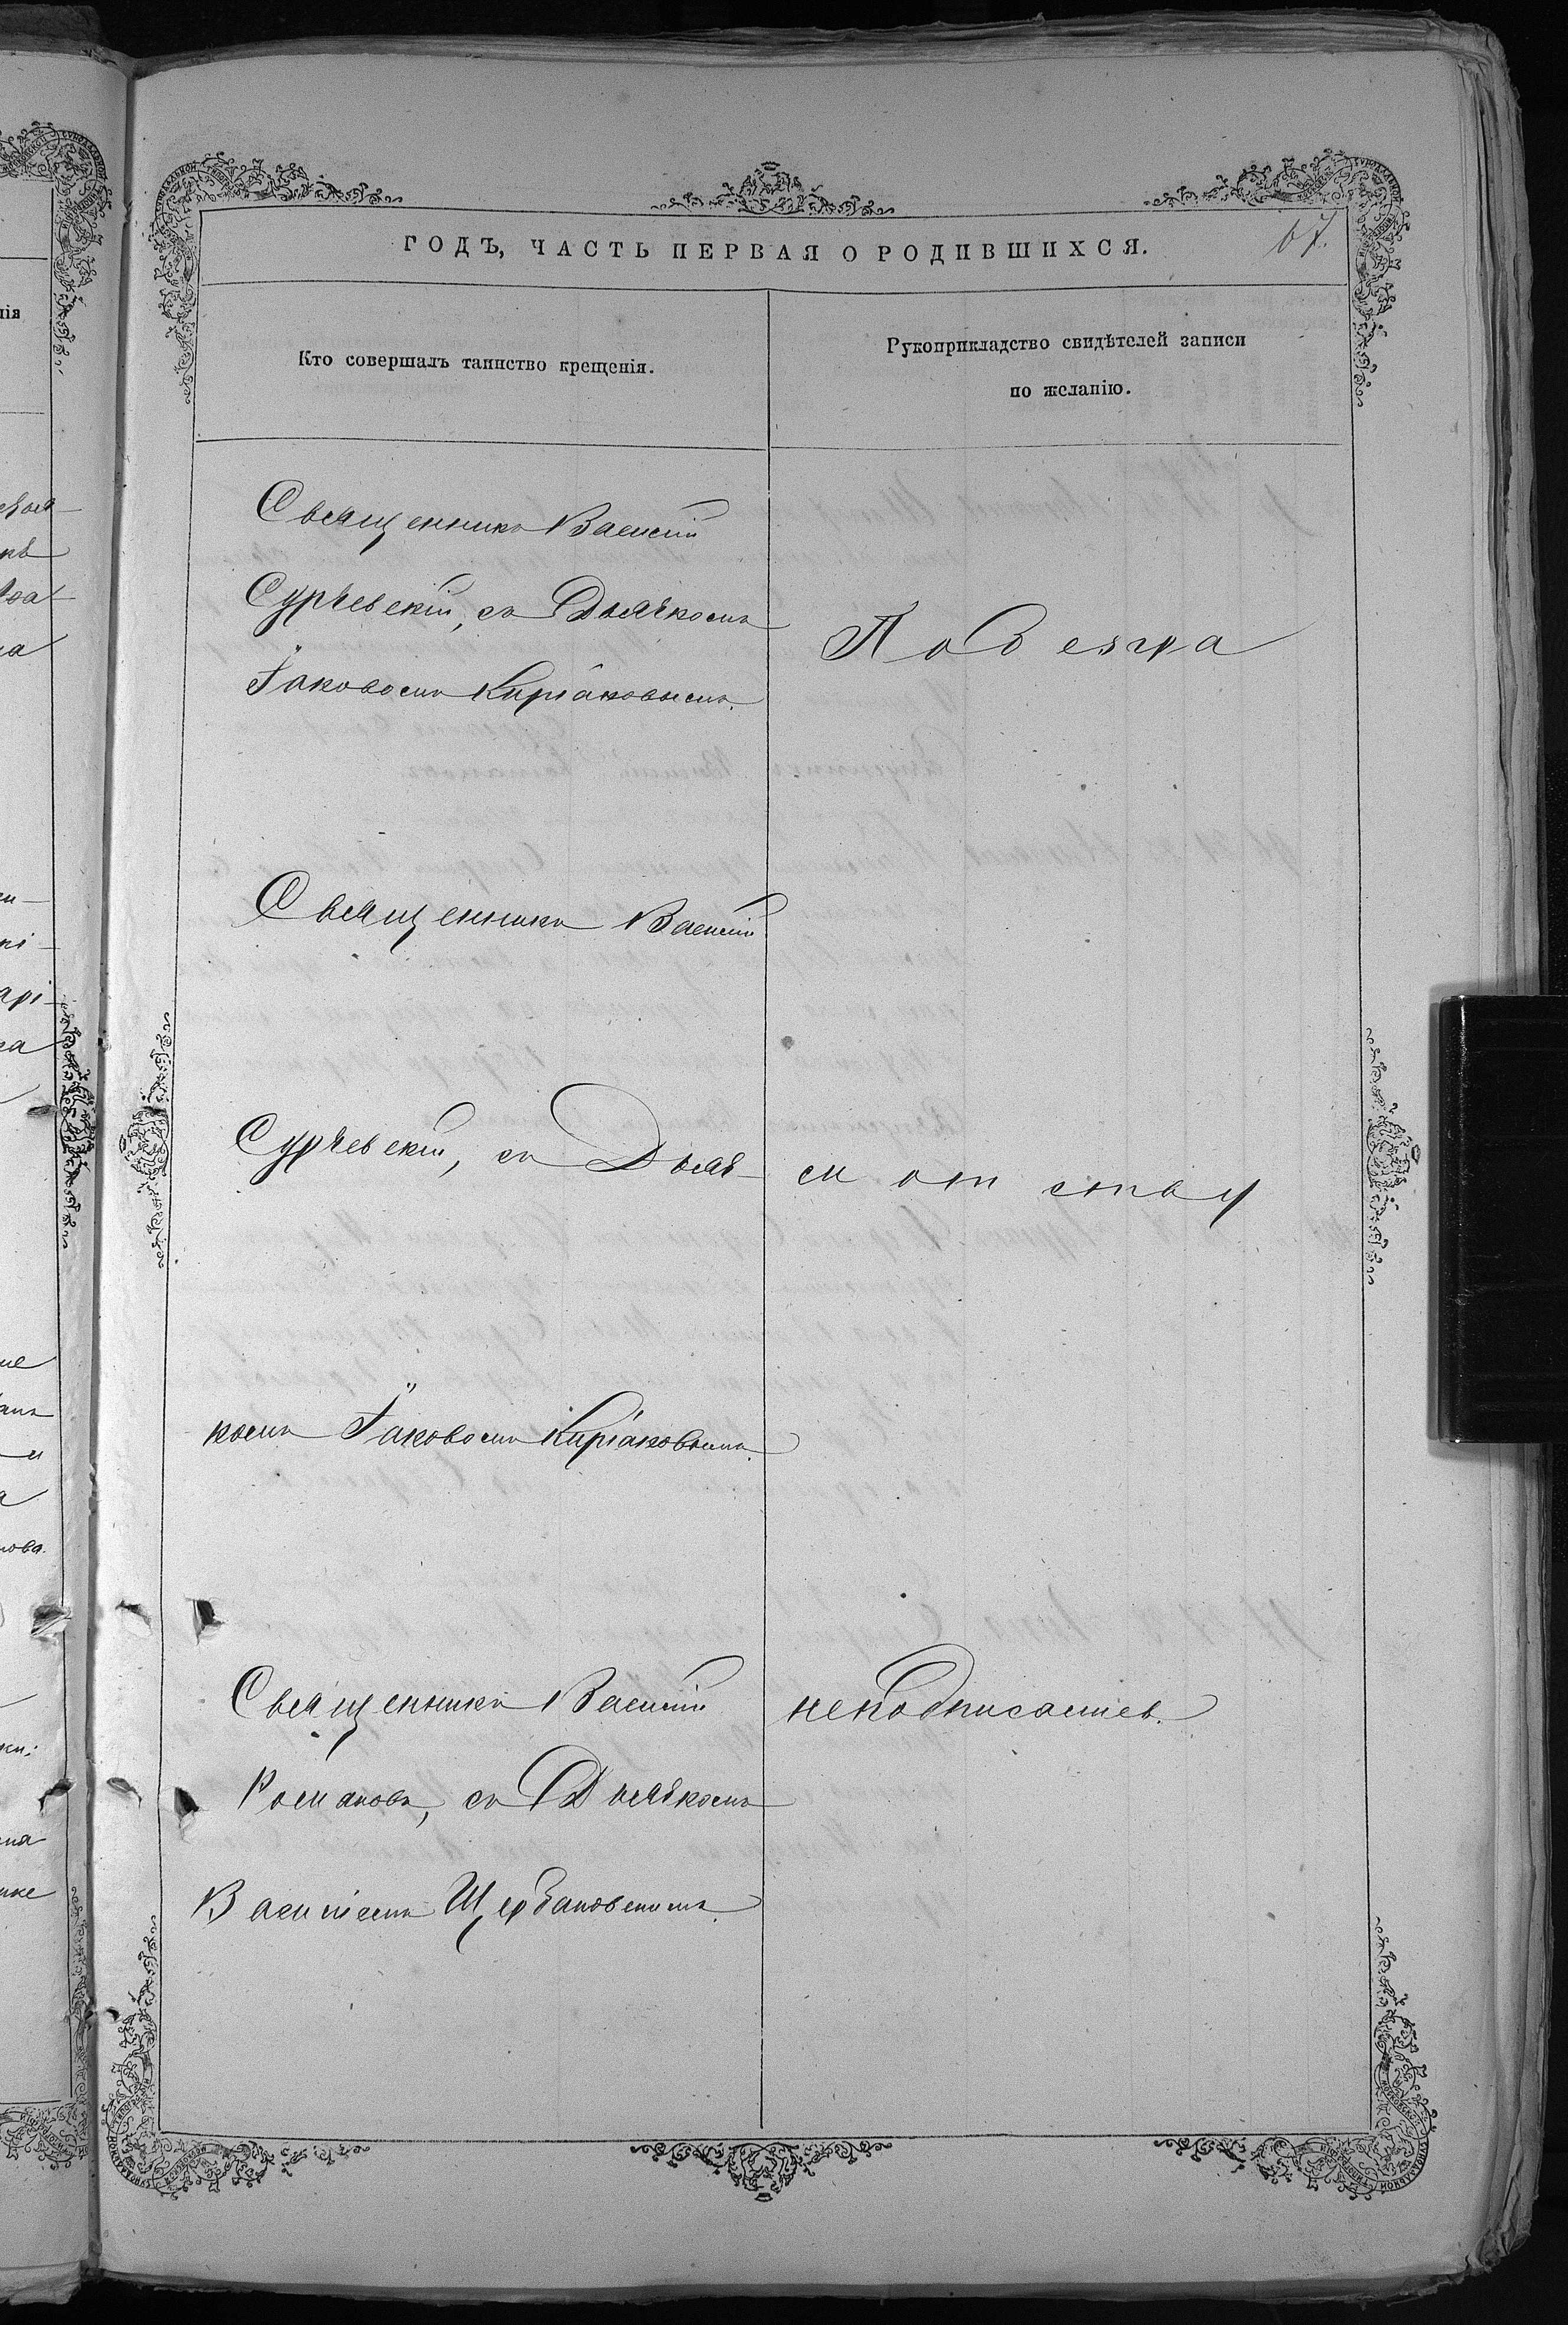 ГОДЪ, ЧАСТЬ ПЕРВАЯ О РОДИВШИХСЯ.
67.
Кто совершалъ таинство крещенія.
Рукоприкладство свидѣтелей записи
по желанію.
Священникъ Василій
Сурчевскій, съ Дьячкомъ
Іаковомъ Киріаковымъ.
По безгра
Священникъ Василій
Сурчевскій, съ Дьяч-
мотству
комъ Іаковомъ Киріаковымъ.
Священникъ Василій
неподписались.
Романовъ, съ Дьячкомъ
Василіемъ Щербановскимъ.